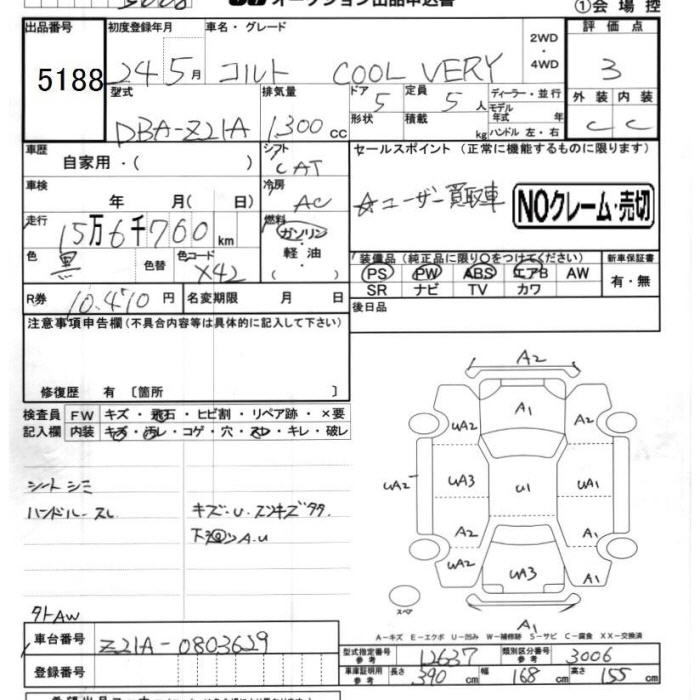 オークション出品申込書
①会場控
出品番号 初度登録年月 車名・グレード 2WD・4WD 評価点
5188 24 5月 コルト COOL VERY 3
型式 排気量 ドア 定員 ディーラー・並行 外装 内装
DBA-Z21A 1,300cc 5 5人 モデル年式 年 C C
形状 積載 kg ハンドル 左・右
車歴 シフト セールスポイント (正常に機能するものに限ります)
自家用・( ) CAT
車検 冷房 ☆ユーザー買取車 NOクレーム・売切
年 月( 日) AC
走行 15万6千760km 燃料 ガソリン・軽油・( )
色 黒 色替 色コード X42
装備品(純正品に限り○をつけてください) 新車保証書
PS PW ABS エアB AW 有・無
SR ナビ TV カワ
R券 10.410円 名変期限 月 日 後日品
注意事項申告欄(不具合内容等は具体的に記入して下さい)
修復歴 有 〔箇所 〕
検査員 FW キズ・飛石・ヒビ割・リペア跡・×要
記入欄 内装 キズ・汚レ・コゲ・穴・スレ・キレ・破レ
シートシミ
ハンドルスレ キズ・U
下廻りA.U
A2
A1
UA2 A2
UA2 UA3 U1 UA1
A2 A1
UA2 UA3 A1
スペア A1
タトAW
A−キズ E−エクボ U−凹み W−補修跡 S−サビ C−腐食 XX−交換済
車台番号 Z21A-0803629
型式指定番号 参考 12637 類別区分番号 参考 3006
登録番号 車庫証明用 参考 長さ 390cm 幅 168cm 高さ 155cm